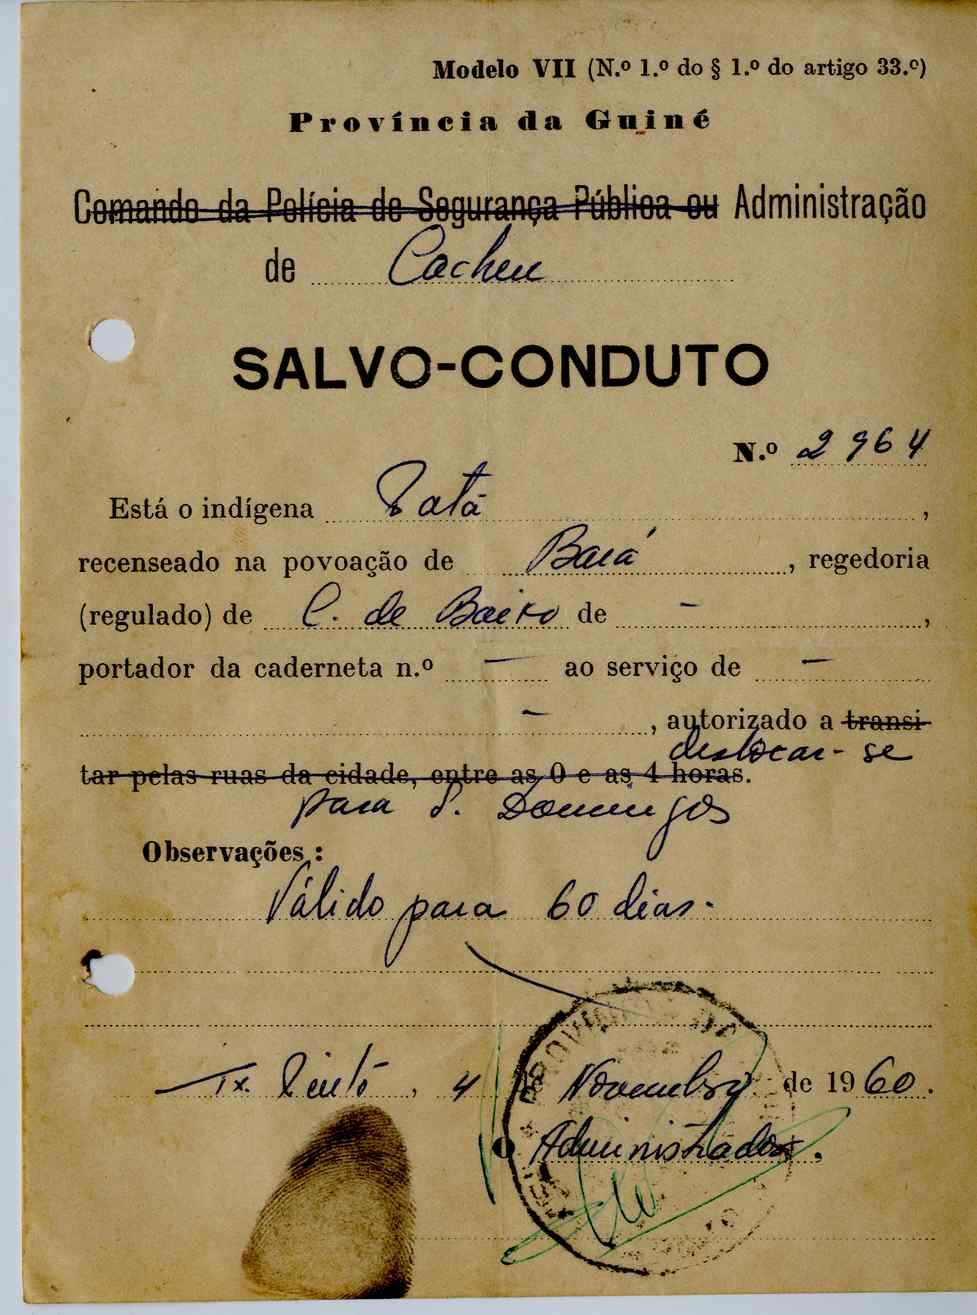 Modelo VII (N.º 1.º do § 1.º do artigo 33.º)
Província da Guiné
Comando da Polícia de Segurança Pública ou Administração
de Cacheu
SALVO-CONDUTO
N.º 2964
Está o indígena Patá,
recenseado na povoação de Bará, regedoria
(regulado) de C. de Baixo de -,
portador da caderneta n.º - ao serviço de -
-, autorizado a transi-
deslocar-se
tar pelas ruas da cidade, entre as 0 e as 4 horas.
para S. Domingos
Observações:
Válido para 60 dias.
Tx. Pinto, 4 de Novembro de 1960.
O Administrador.